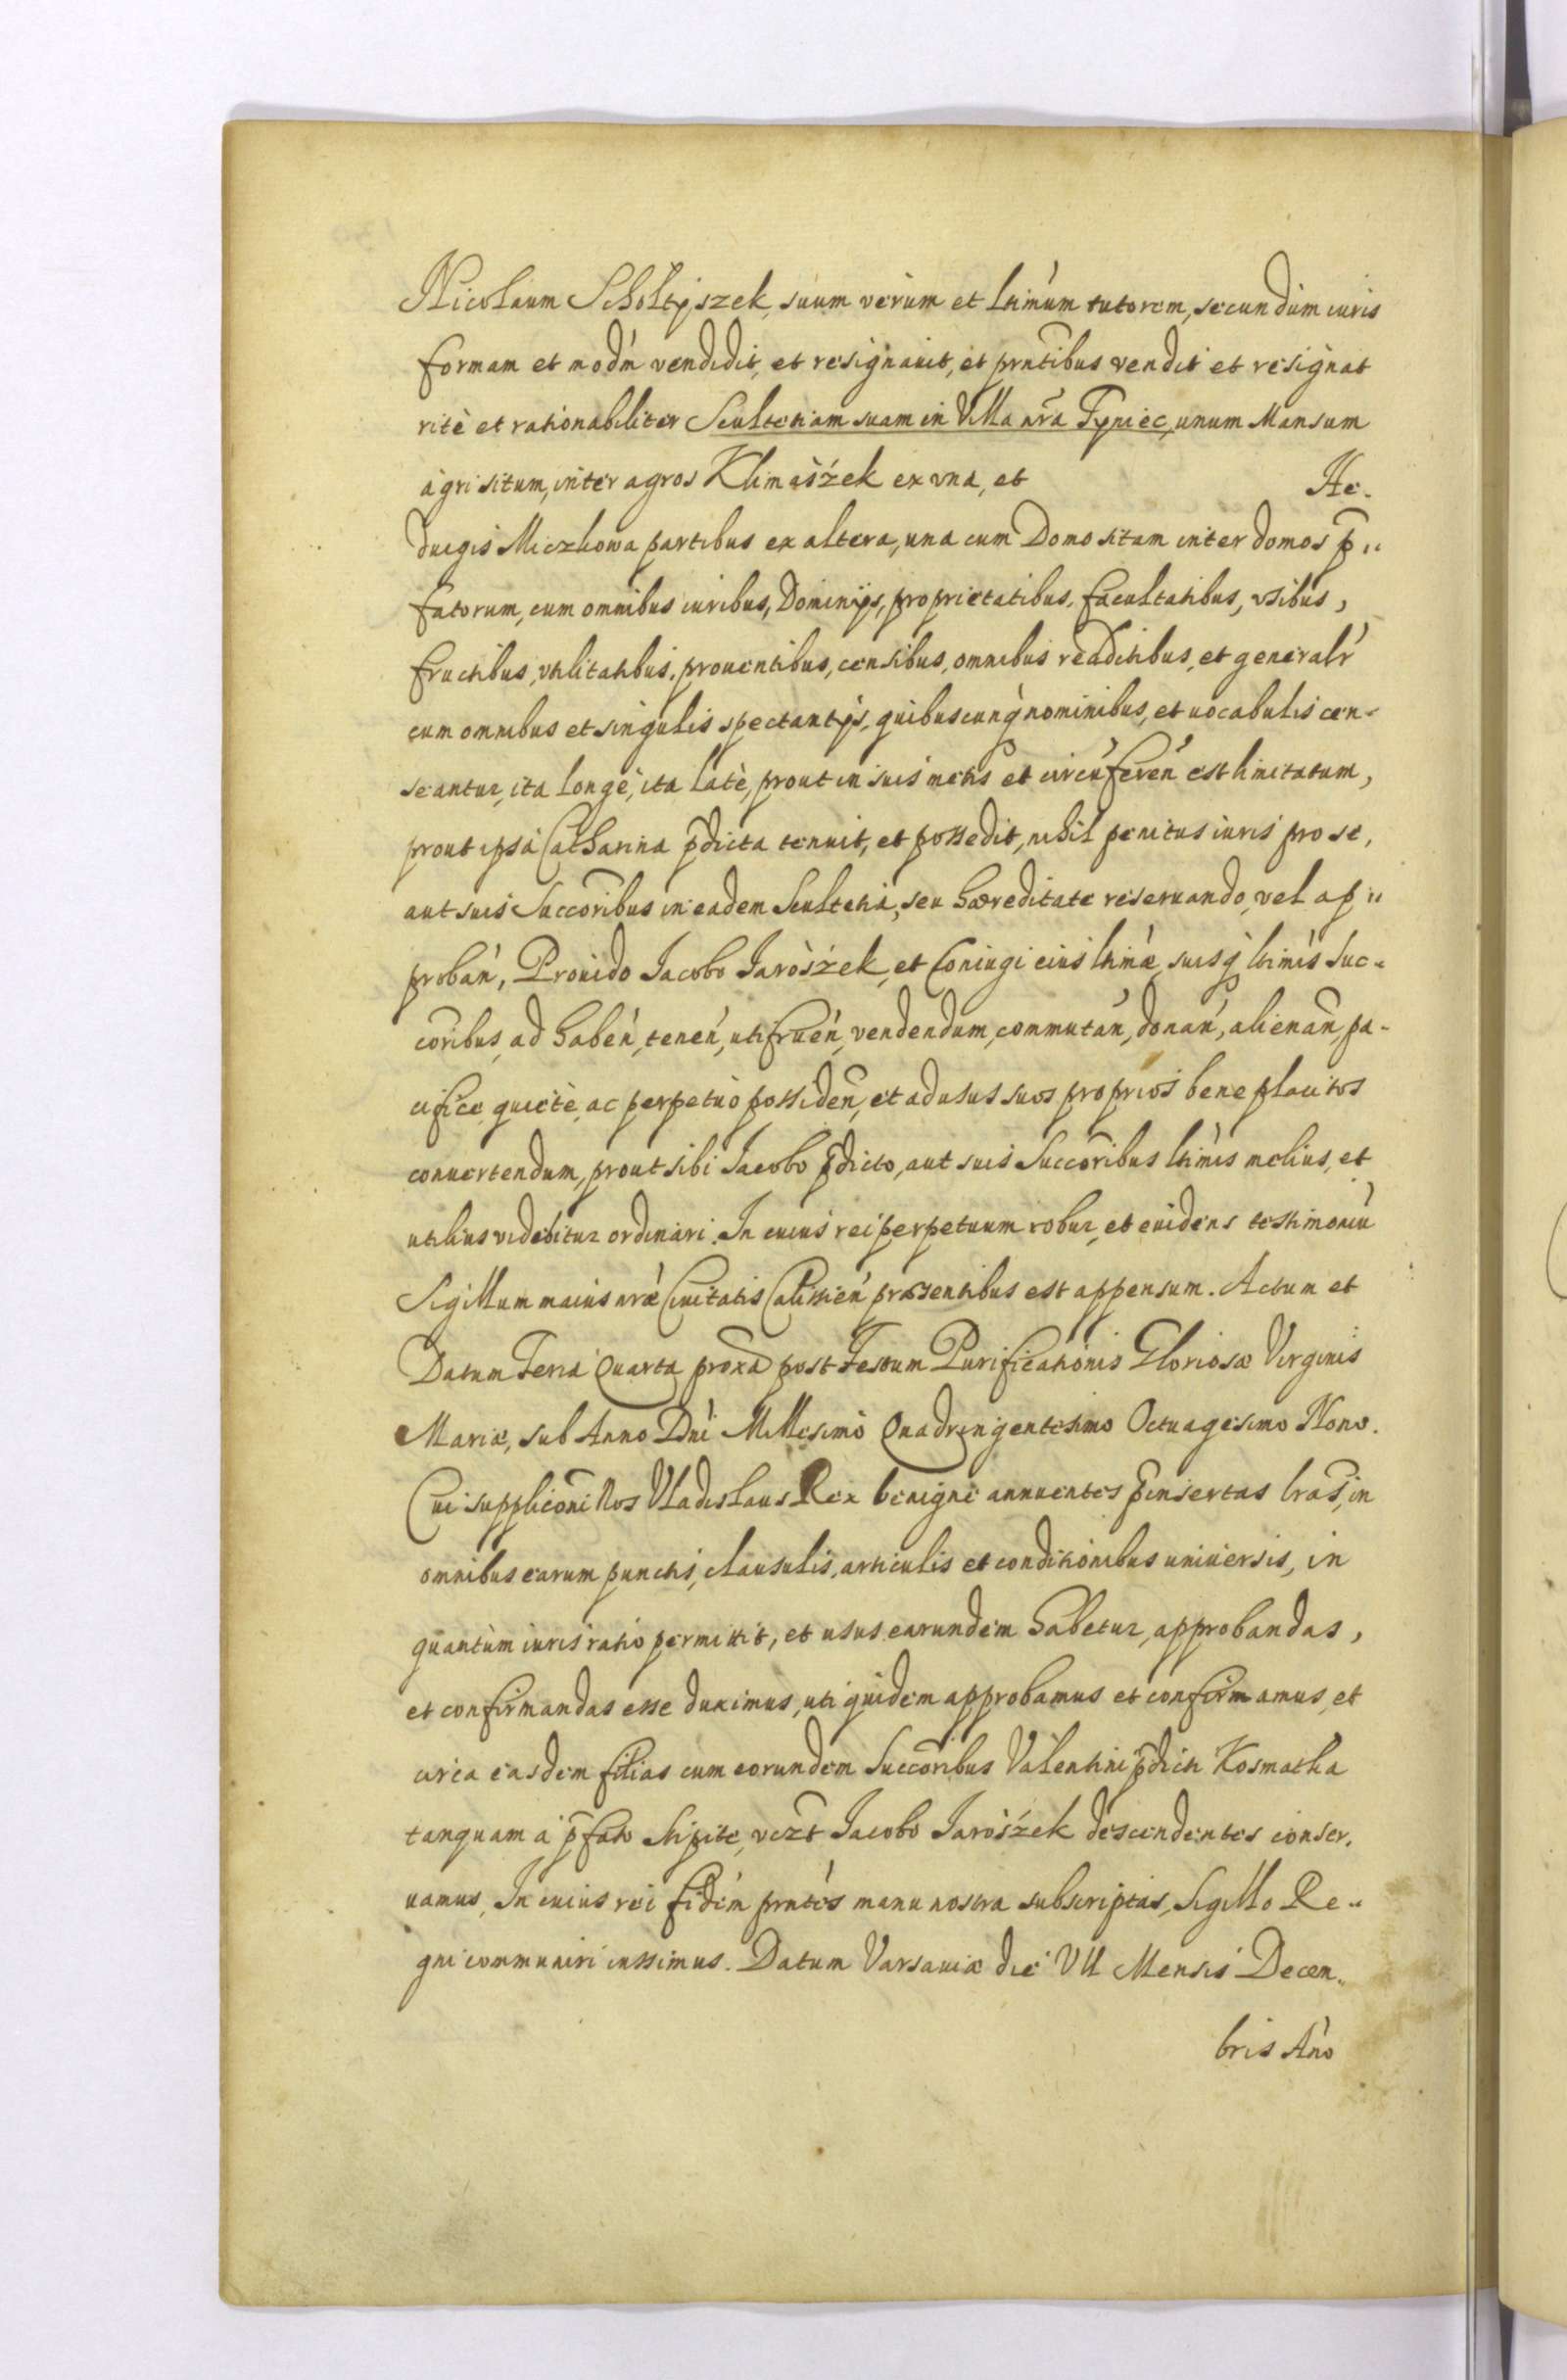 Nicolaum Scholtyszek, suum verum et ltimum tutorem, secundum iuris
formam et modm vendidit, et resignauit, et prntibus vendit et resignat
ritè et rationabiliter Scultetiam suam in Villa nra Tyniec, unum Mansum
agri situm, inter agros Klimaszek ex vna, et He-
duigis Miczkowa partibus ex altera, una cum Domo sitam inter domos p„
fatorum, cum omnibus iuribus, Dominijs, proprietatibus, facultatibus, vsibus,
fructibus, vtilitatibus, prouentibus, censibus, omnibus readitibus, et generalr
cum omnibus et singulis spectantijs, quibuscunq nominibus, et uocabulis cen-
seantur, ita longè, ita latè, prout in suis metis et circuferen est limitatum,
prout ipsa Catharina pdicta tenuit, et possedit, nihil penitus iuris pro se,
aut suis Succoribus in eadem Scultetia, seu hæreditate reseruando, vel ap„
proban, Prouido Jacobo Jaroszek, et Coniugi eius ltimæ, suisq ltimis Suc-
coribus, ad haben, tenen, utifruen, vendendum, commutan, donan, alienan, pa-
cifice, quietè, ac perpetuò possiden, et ad usus suos proprios bene placitos
conuertendum, prout sibi Jacobo pdicto, aut suis Succoribus ltimis melius, et
utilius videbitur ordinari. In cuius rei perpetuum robur, et euidens testimoniu
Sigillum maius nræ Ciuitatis Calissien præsentibus est appensum. Actum et
Datum Feria Quarta proxa post Festum Purificationis Gloriosæ Virginis
Mariæ, sub Anno Dni Millesimo Quadringentesimo Octuagesimo Nono.
Cui supplicōni Nos Vladislaus Rex benigne annuentes pinsertas lras, in
omnibus earum punctis, clausulis, articulis et conditionibus uniuersis, in
quantùm iuris ratio permittit, et usus earundem habetur, approbandas,
et confirmandas esse duximus, uti quidem approbamus et confirmamus, et
circa easdem filias cum eorundem Succoribus Valentini pdicti Kosmatka
tanquam a pfato stipite, vczt Jacobo Jaroszek descendentes conser-
uamus, In cuius rei fidem prntes manu nostra subscriptas, Sigillo Re„
gni communiri iussimus. Datum Varsauiæ die VII Mensis Decem„
bris Ano